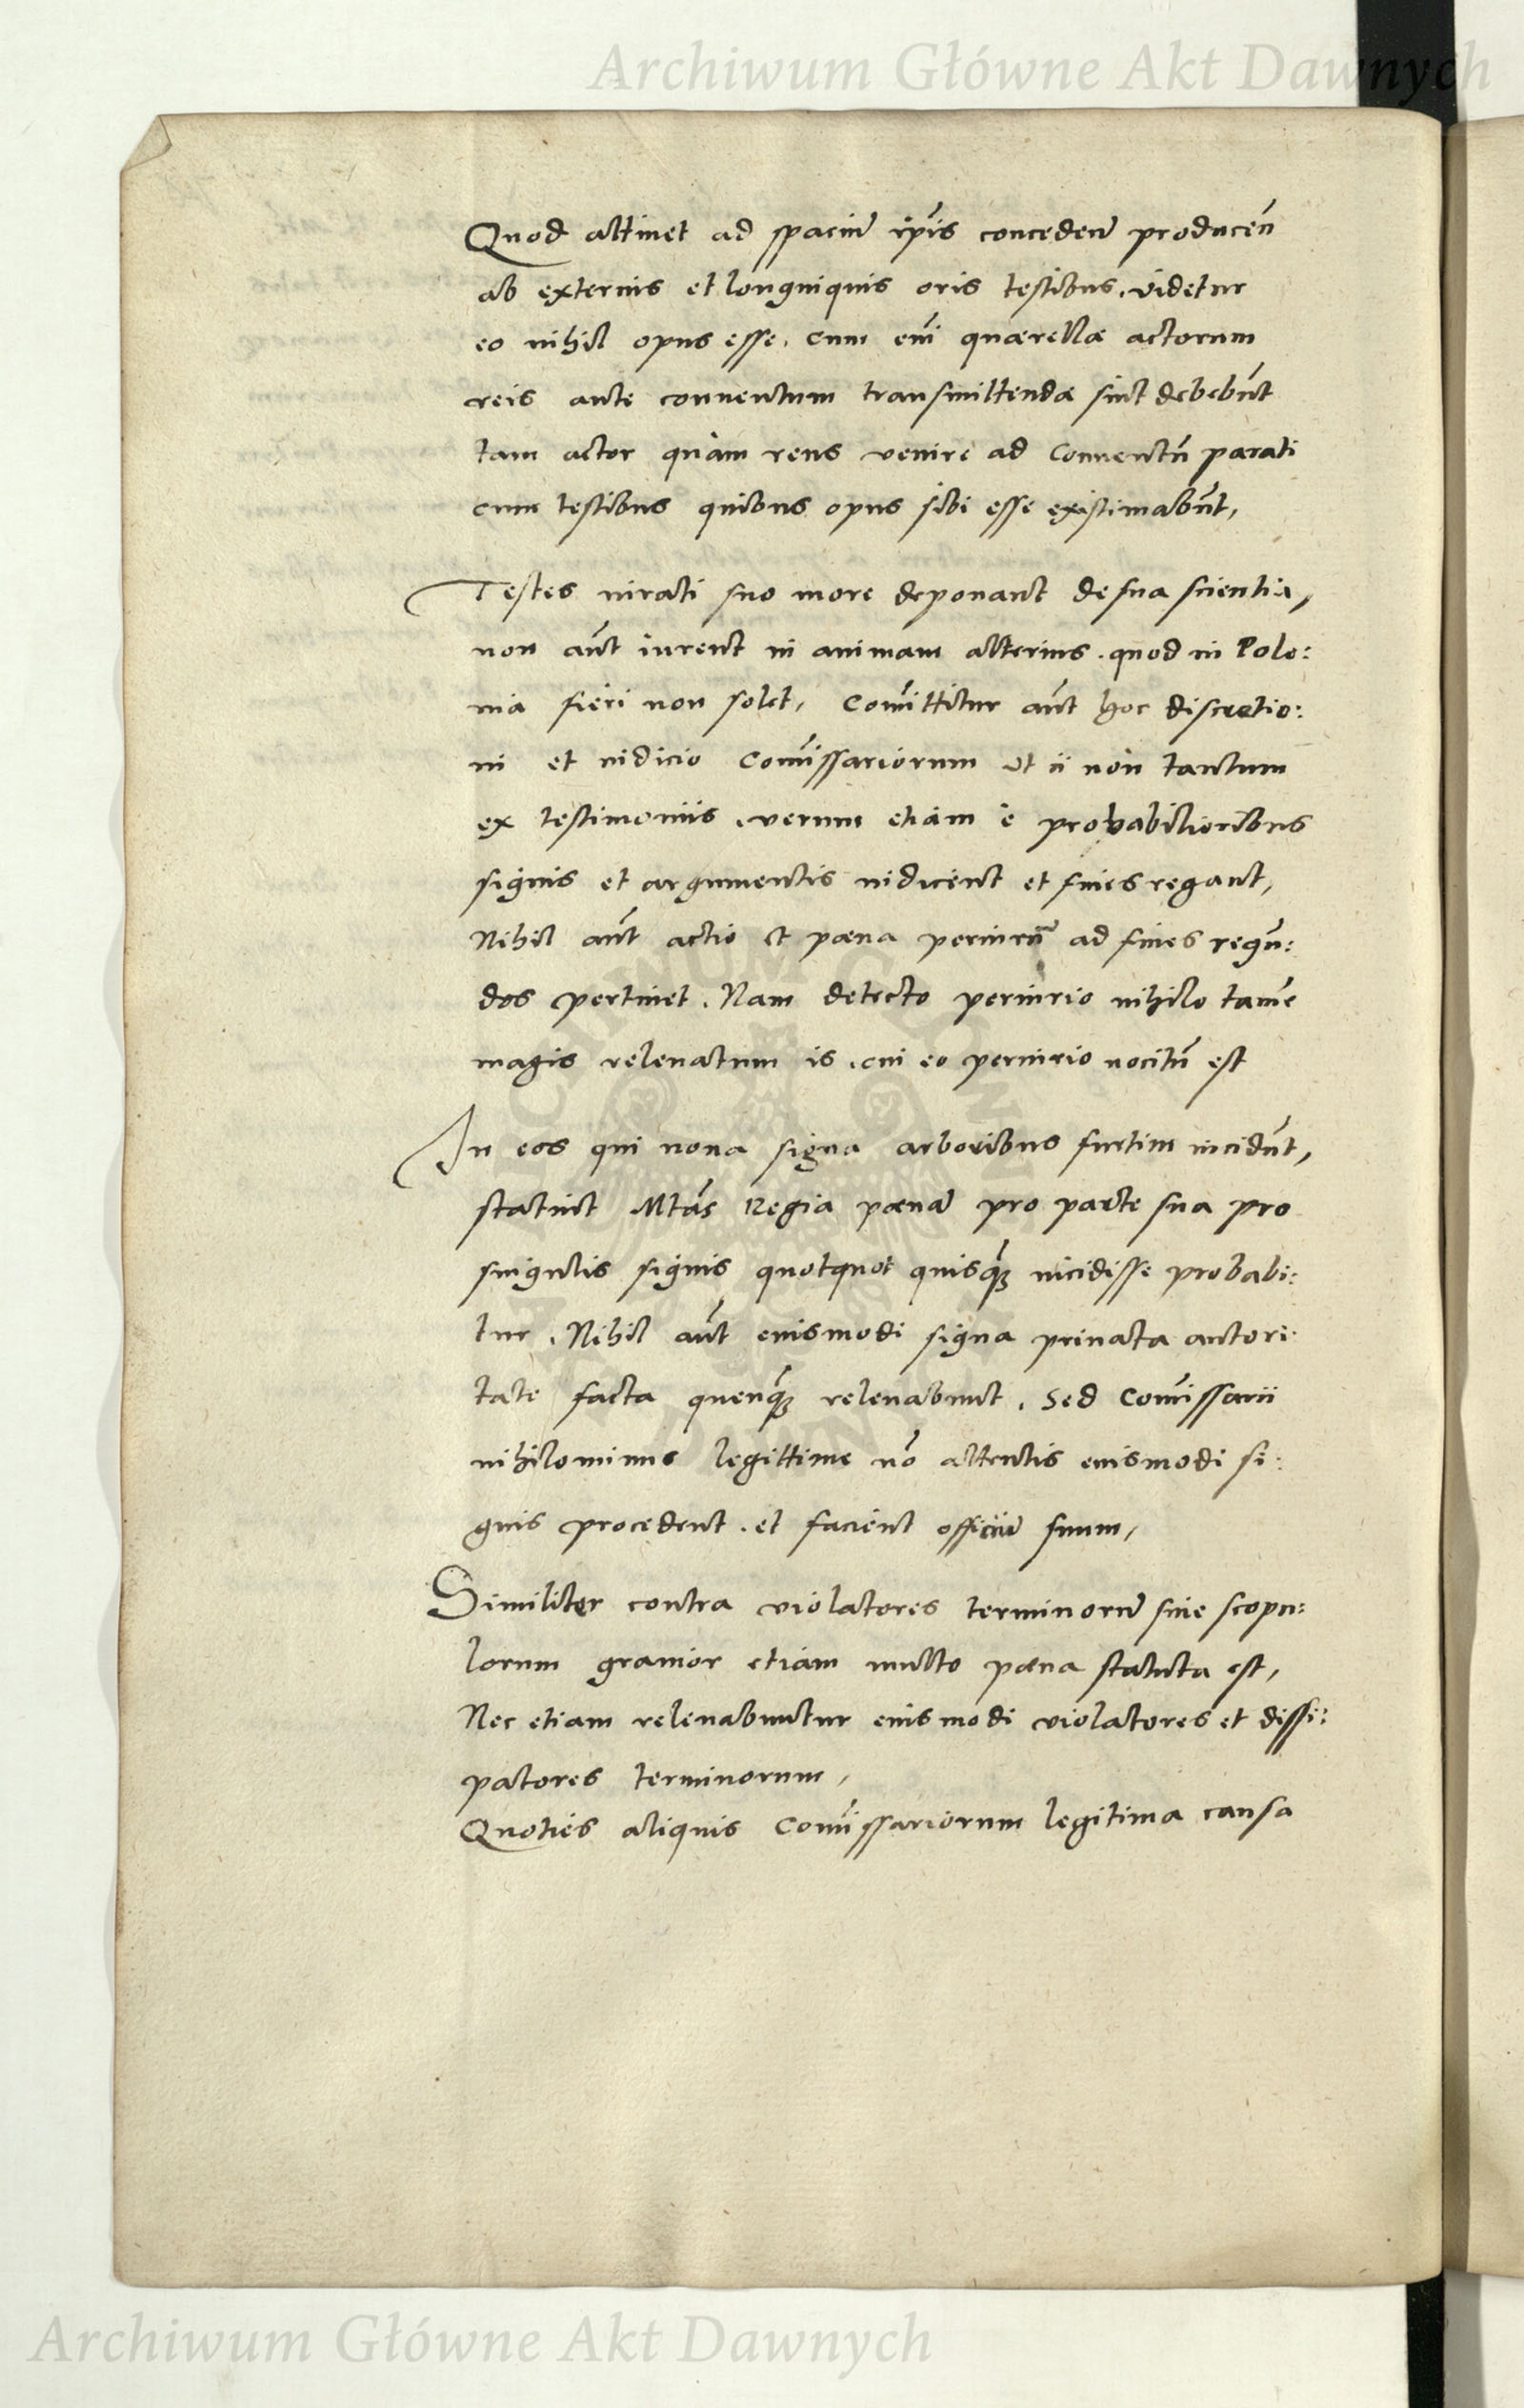 Archiwum Główne Akt Dawnych
Quod attinet ad spaciũ ip̃is concedeñ producen̄
ab externis et longniquis oris testibus, videtur
eo nihil opus esse. Cum em̃ quærellæ actorum
reis ante conuentum transmittendæ sint debebũt
tam actor quàm reus venire ad Conuentũ parati
cum testibus quibus opus sibi esse existimabũt,
Testes iurati suo more deponant de sua scientia,
non aũt iurent in animam alterius. quod in Polo:
nia fieri non solet, Com̃ittitur aũt hoc discretio:
ni et iudicio Com̃issariorum vt ii non tantum
ex testimoniis, verum etiam è probabilioribus
signis et argumentis iudicent et fines regant,
Nihil aũt actio et pæna periurii ad fines regũ:
dos pertinet. Nam detecto periurio nihilo tamẽ
magis releuatum is, cui eo periurio nocitũ est
In eos qui noua signa arboribus furtim incidũt,
statuit Mtãs Regia pænã pro parte sua pro
singulis signis quotquot quisq̃ incidisse probabi:
tur. Nihil aũt eiusmodi signa priuata autori:
tate facta quenq̃ releuabunt. Sed Com̃issarii
nihilominus legittime nõ attentis eiusmodi si:
gnis procedent. et facient officiũ suum,
Similiter contra violatores terminorũ siue scopu:
lorum grauior etiam multo pæna statuta est,
Nec etiam releuabuntur eiusmodi violatores et dissi:
patores terminorum,
Quoties aliquis Com̃issariorum legitima causa
Archiwum Główne Akt Dawnych